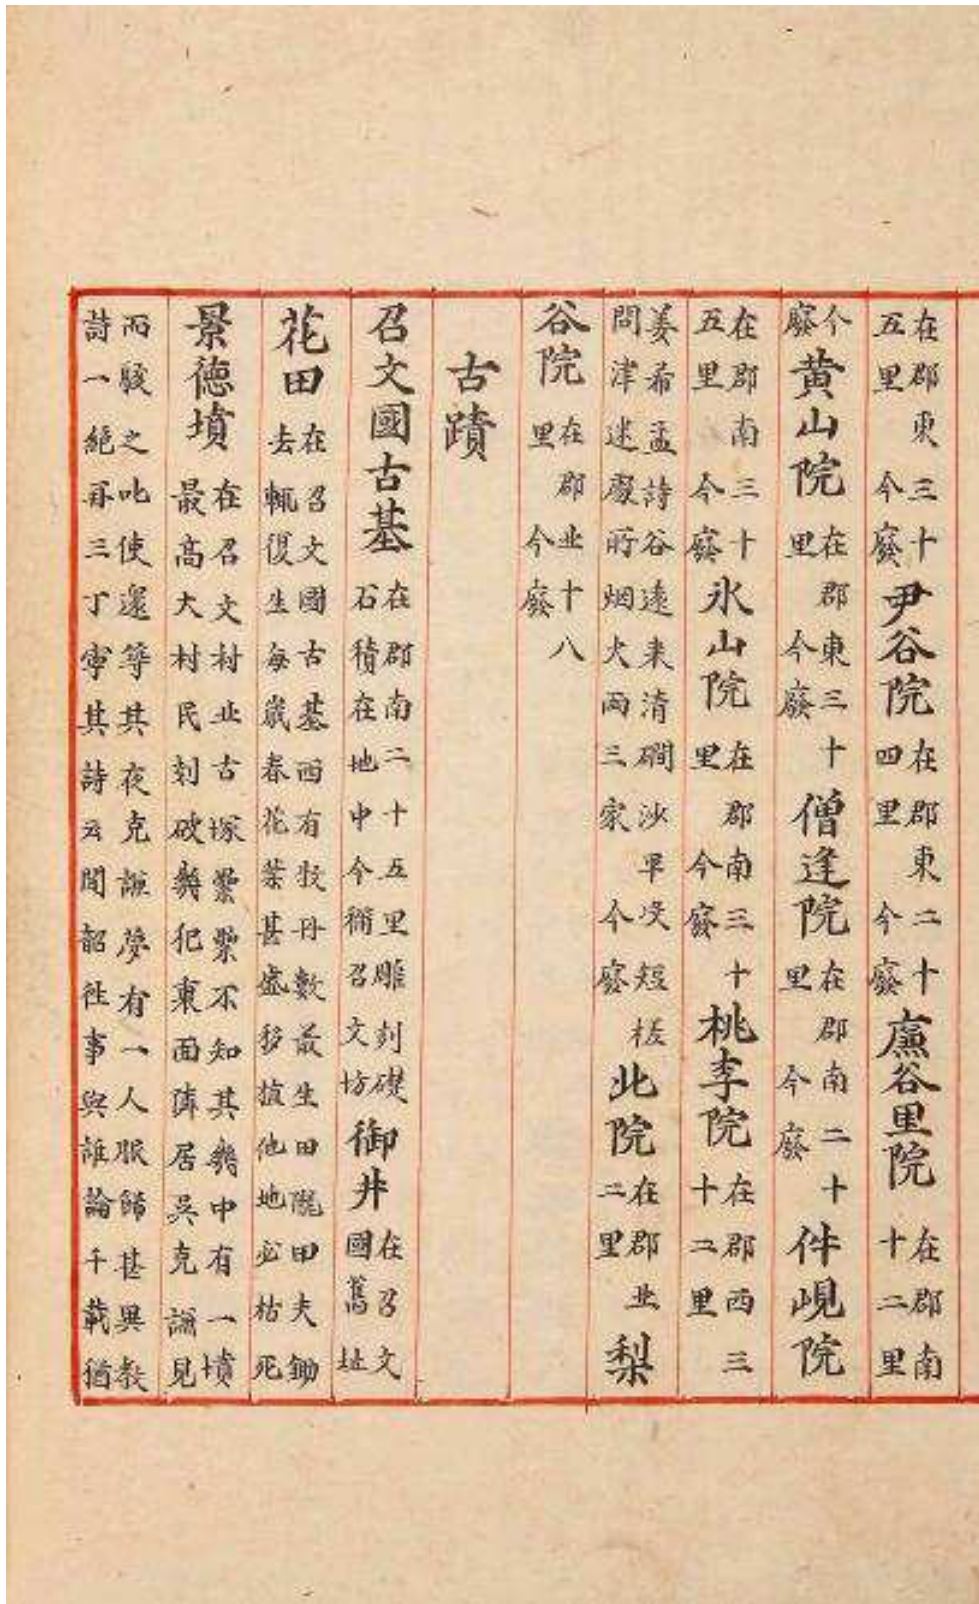 在郡東三十五里今廢尹谷院在郡東二十四里今廢廉谷里院在郡南十二里
今廢黄山院在郡東三十里今廢僧逢院在郡南二十里今廢件峴院
在郡南三十五里今廢氷山院在郡南三十里今廢桃李院在郡西三十二里
姜希孟詩谷遠来清磵沙平没短槎問津迷處所烟火兩三家今廢北院在郡北二里梨
谷院在郡北十八里今廢
古蹟
召文國古基在郡南二十五里雕刻礎石積在地中今稱召文坊御井在召文國舊址
花田在召文國古基西有牧丹數最生田隴田夫鋤去輒復生每歲春花葉甚盛移植他地必枯死
景德墳在召文村北古塚纍纍不知其幾中有一墳最高大村民剝破幾犯裏面倅居吳克謙見
而駭之叱使還等其夜克謙夢有一人服飾甚異教詩一絕再三丁寧其詩云聞韶往事與誰論千載猶